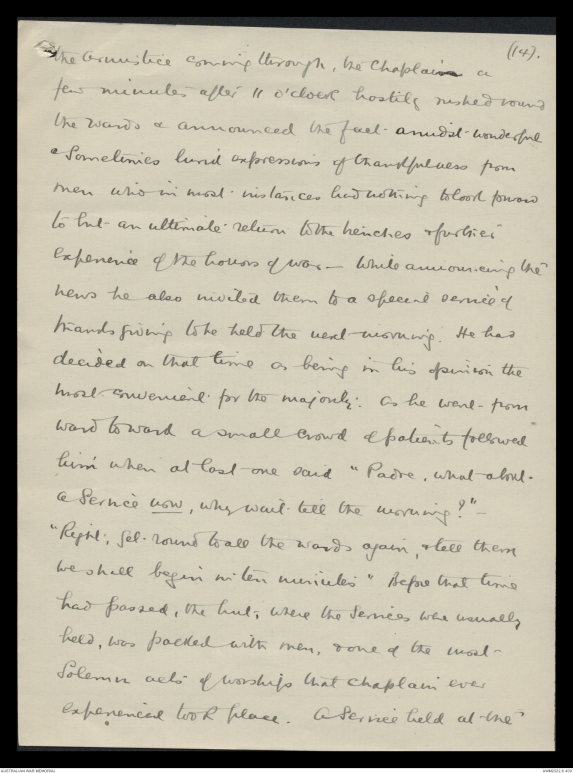 (14).
the armistice coming through, the Chaplain a
few minutes after 11 o'clock hastily rushed round
the wards & announced the fact amidst wonderful
& sometimes lurid expressions of thankfulness from
men who in most instances had nothing to look forward
to but an ultimate return to the trenches & further
experience of the horrors of war — While announcing the
news he also invited them to a special service of
thanksgiving to be held the next morning. He had
decided on that time as being in his opinion the
most convenient for the majority. As he went from
ward to ward a small crowd of patients followed
him when at last one said "Padre, what about
a Service now, why wait till the morning?" –
"Right, get round to all the wards again, & tell them
we shall begin in ten minutes" Before that time
had passed, the hut, where the services were usually
held, was packed with men, & one of the most
solemn acts of worship that Chaplain ever
experienced took place. A Service held at the
AUSTRALIAN WAR MEMORIAL